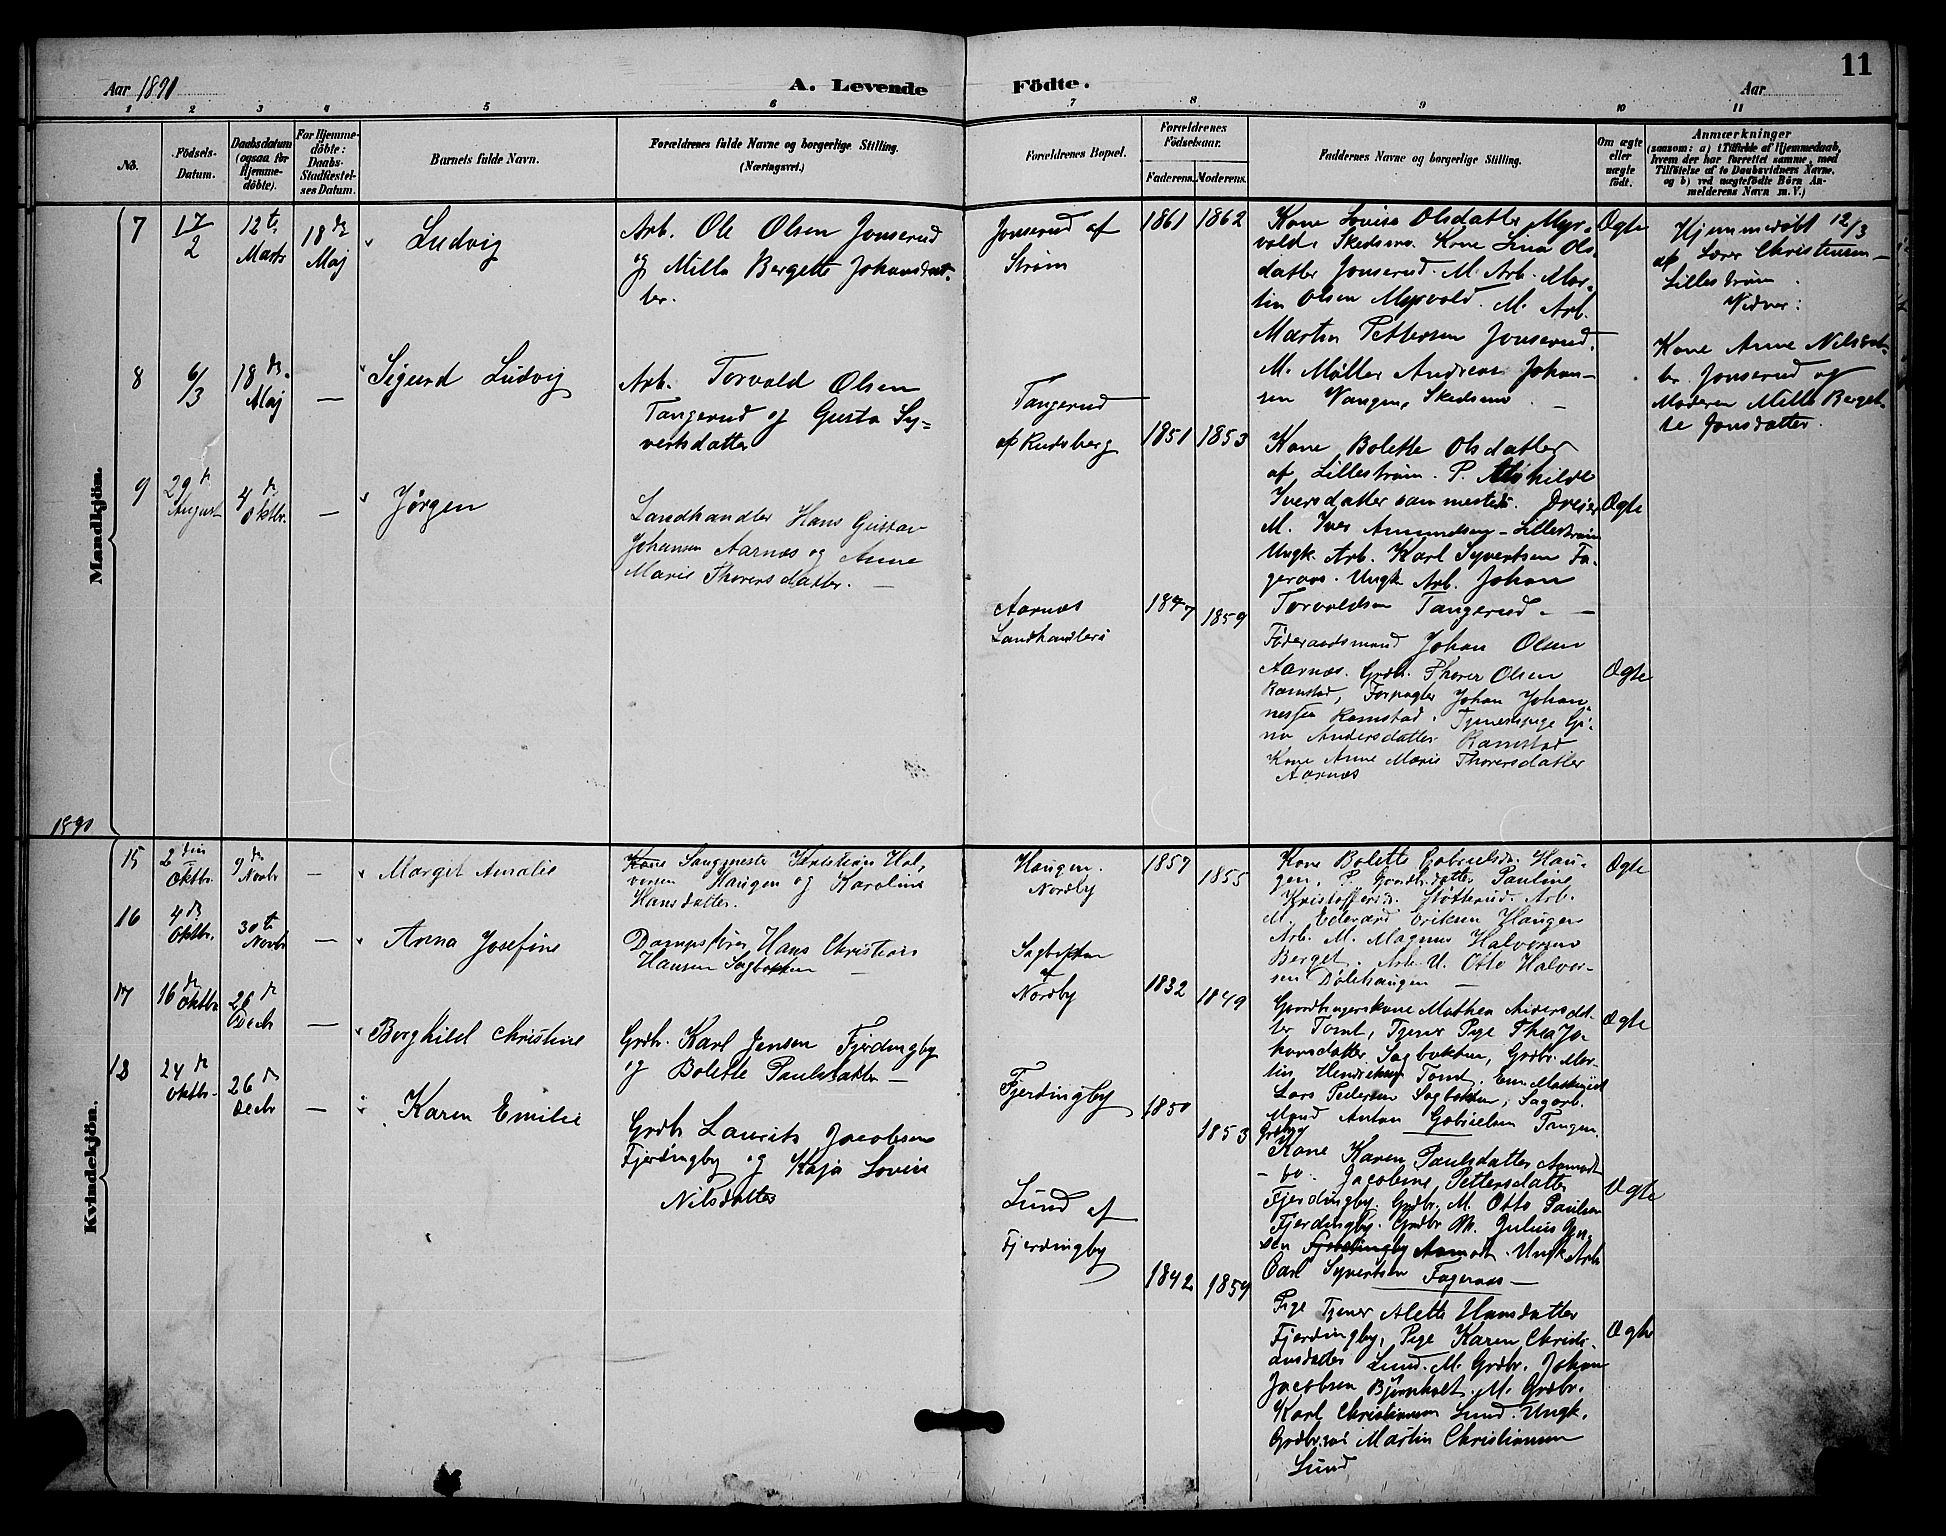 11
Aar 1891
A. Levende Födte.
Aar
1 2 3 4 5 6 7 8 9 10 11
No.
Födsels-Datum.
Daabsdatum (ogsaa for Hjemme-döbte).
For Hjemme-döbte: Daabs-Stadfæstel-ses Datum.
Barnets fulde Navn.
Forældrenes fulde Navne og borgerlige Stilling. (Næringsvei.)
Forældrenes Bopæl.
Forældrenes Födselsaar.
Faderens. Moderens.
Faddernes Navne og borgerlige Stilling.
Om ægte eller uægte födt.
Anmærkninger
(saasom: a) i Tilfælde af Hjemmedaab,
hvem der har forrettet samme, med
Tilföielse af to Daabsvidners Navne,
og b) ved uægtefödte Börn An-
melderens Navn m. V.)
Mandkjön.
7
17/2
12te Marts
18de Maj
Ludvig
Arb. Ole Olsen Jonserud
og Milla Bergette Johansdat-
ter.
Jonserud af
Strøm
1861 1862
Kone Lovise Olsdatter Myr-
vold, Skedsmo. Kone Lina Ols-
datter Jonserud. M. Arb. Mar-
tin Olsen Myrvold. M. Arb.
Martin Pettersen Jonserud.
M. Møller Andreas Johan-
sen Vangen, Skedsmo
Ægte
Hjemmedøbt 12/3
af Lærer Christensen
Lillestrøm.
Vidner:
Kone Anne Nilsdat-
ter Jonserud og
Moderen Milla Berget-
te Jonsdatter.
8
6/3
18de Maj
—
Sigurd Ludvig
Arb. Torvald Olsen
Tangerud og Gusta Sy=
vertsdatter
Tangerud
af Rudsberg
1851 1853
Kone Bolette Olsdatter
af Lillestrøm. P. Mathilde
Iversdatter sammesteds. Dreier
M. Iver Amundsen - Lillestrøm
Ungk. Arb. Karl Syvertsen Fa-
geraas. Ungk Arb. Johan
Torvaldsen Tangerud. —
Ægte
9
29de August
4de Oktbr.
—
Jørgen
Landhandler Hans Gustav
Johansen Aarnæs og Anne
Marie Thorersdatter. —
Aarnæs
Landhandleri
1847 1859
Føderaadsmand Johan Olsen
Aarnæs. Grdbr. Thorer Olsen
Ramstad, Forpagter Johan Johan-
nessen Ramstad. Tjenestpige Gi-
na Andersdatter Ramstad
Kone Anne Marie Thorersdatter
Aarnæs
Ægte
1890
Kvindekjön.
15
2den Oktbr.
9de Novbr
—
Margit Amalie
Sangmester Kristian Hal-
versen Haugen og Karoline
Hansdatter.
Haugen.
Nordby
1857 1855
Kone Bolette Gabrielsd. Hau-
gen, P. Gaardbr.datter Pauline
Kristoffersd. Støtterud. Arb.
M. Edevard Eriksen Haugen
Arb. M. Magnus Halvorsen
Berget. Arb. U. Otto Halvor-
sen Dølehaugen —
Ægte
16
4de Oktbr.
30te Novbr
—
Anna Josefine
Dampsfører Hans Christian
Hansen Sagbakken —
Sagbakken
af
Nordby
1832 1849
Gaardbrugerskone Mathea Andersdat-
ter Tomt, Tjener Pige Thea Jo-
hansdatter Sagbakken, Grdbr. Mar-
tin Hendriksen Tomt.
Lars Pedersen Sagbakken, Sagarb.
Mand Anton Gabrielsen Tangen.
Ægte
17
16de Oktbr
26de Decbr
—
Borghild Christine
Grdbr. Karl Jensen Fjerdingby
og Bolette Paulsdatter —
Fjerdingby
1850 1853
Kone Karen Paulsdatter Aamodt
- do. Jacobine Pettersdatter
Fjerdingby. Grdbr. M. Otto Paulsen
Fjerdingby. Grdbr M. Julius Jen-
sen Fjerdingby Aamodt. Ungk Arb.
Carl Syvertsen Fageraas —
Ægte
18
24de Oktbr.
26de Decbr
—
Karen Emilie
Grdbr Laurits Jacobsen
Fjerdingby og Kaja Lovise
Nilsdatter
Lund af
Fjerdingby
1842 1859
Pige Tjener Alette Hansdatter
Fjerdingby, Pige Karen Christi-
ansdatter Lund. M. Grdbr. Johan
Jacobsen Bjørnholt. M. Grdbr.
Karl Christiansen Lund. Ungk.
Martin Christiansen
Lund
Ægte